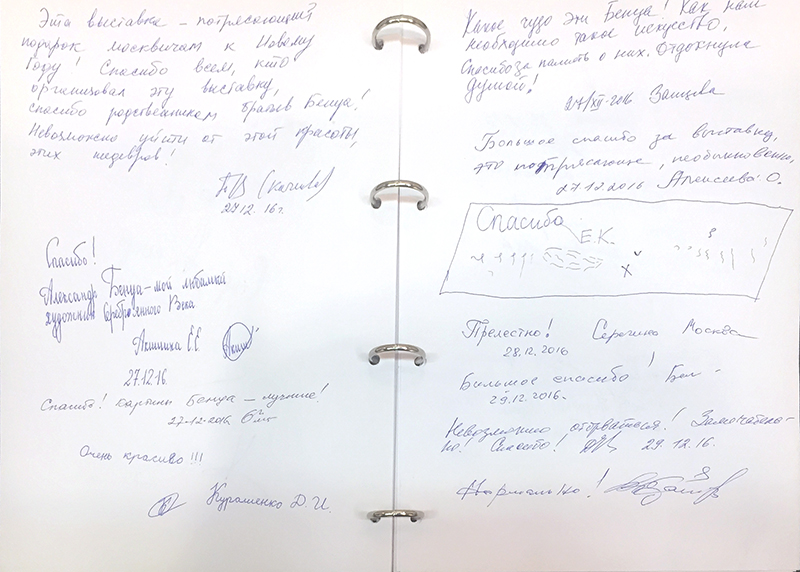 Эта выставка – потрясающий
подарок москвичам к Новому
Году! Спасибо всем, кто
организовал эту выставку,
спасибо родственникам братьев Бенуа!
Невозможно уйти от этой красоты,
этих шедевров!
27.12.16г.
Спасибо!
Александр Бенуа – мой любимый
художник Серебрянного Века
Акинина Е.Е.
27.12.16.
Спасибо! Картины Бенуа – лучшие!
27-12-2016
Очень красиво!!!
Курашенко Д.И.
Какое чудо эти Бенуа! Как нам
необходимо такое искусство,
Спасибо за память о них. Отдохнула
душой!
27/XII-2016 Зайцева
Большое спасибо за выставку,
это потрясающе, необыкновенно,
27.12.2016 Алексеева О.
Спасибо
Е.К.
Прелестно! Серегина Москва
28.12.2016
Большое спасибо!
29.12.2016.
Невозможно оторваться! Замечатель-
но! Спасибо! 29.12.16.
Нормально!